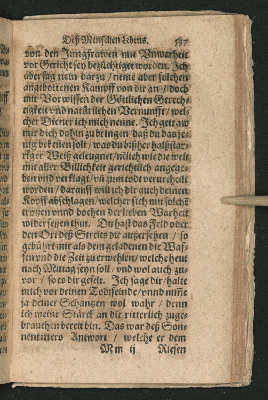 Deß Menschen Lebens. 587
von den Jungfrawen mit Unwarheit
vor Gericht sey bezüchtiget worden. Ich
aber sag nein darzu / neme aber solchen
angebottenen Kampff von dir an / doch
mit Vorwissen der Göttlichen Gerech-
tigkeit und natürlichen Vernunfft / wel-
cher Diener ich mich nenne. Ich getraw
mir dich dahin zu bringen / daß du das je-
nig bekennen solt / was du bißher halßstar-
riger Weiß geleugnet / nölich wie die weil
mit aller Billichkeit gerichtlich angege-
ben und verklagt / uñ zum todt verurtheilt
worden / darauff will ich dir auch deinen
Kopff abschlagen / welcher sich mit solchē
trotzen unnd bochen der lieben Warheit
widersetzen thut. Du hast das Feld oder
den Ort deß Streits dir außersehen / so
gebührt mir als dem geladenen die Waf-
fen und die Zeit zu erwehlen / welche heut
nach Mittag seyn soll / und wol auch zu-
vor / so es dir gefelt. Ich sage dir / halte
mich vor deinen Todtfeinde / unnd nim̃e
ja deiner Schantzen wol wahr / denn
ich meine Stärck an dir ritterlich zuge-
brauchen bereit bin. Das war deß Son-
nentitters Antwort / welche er dem
Mm ij Riesen